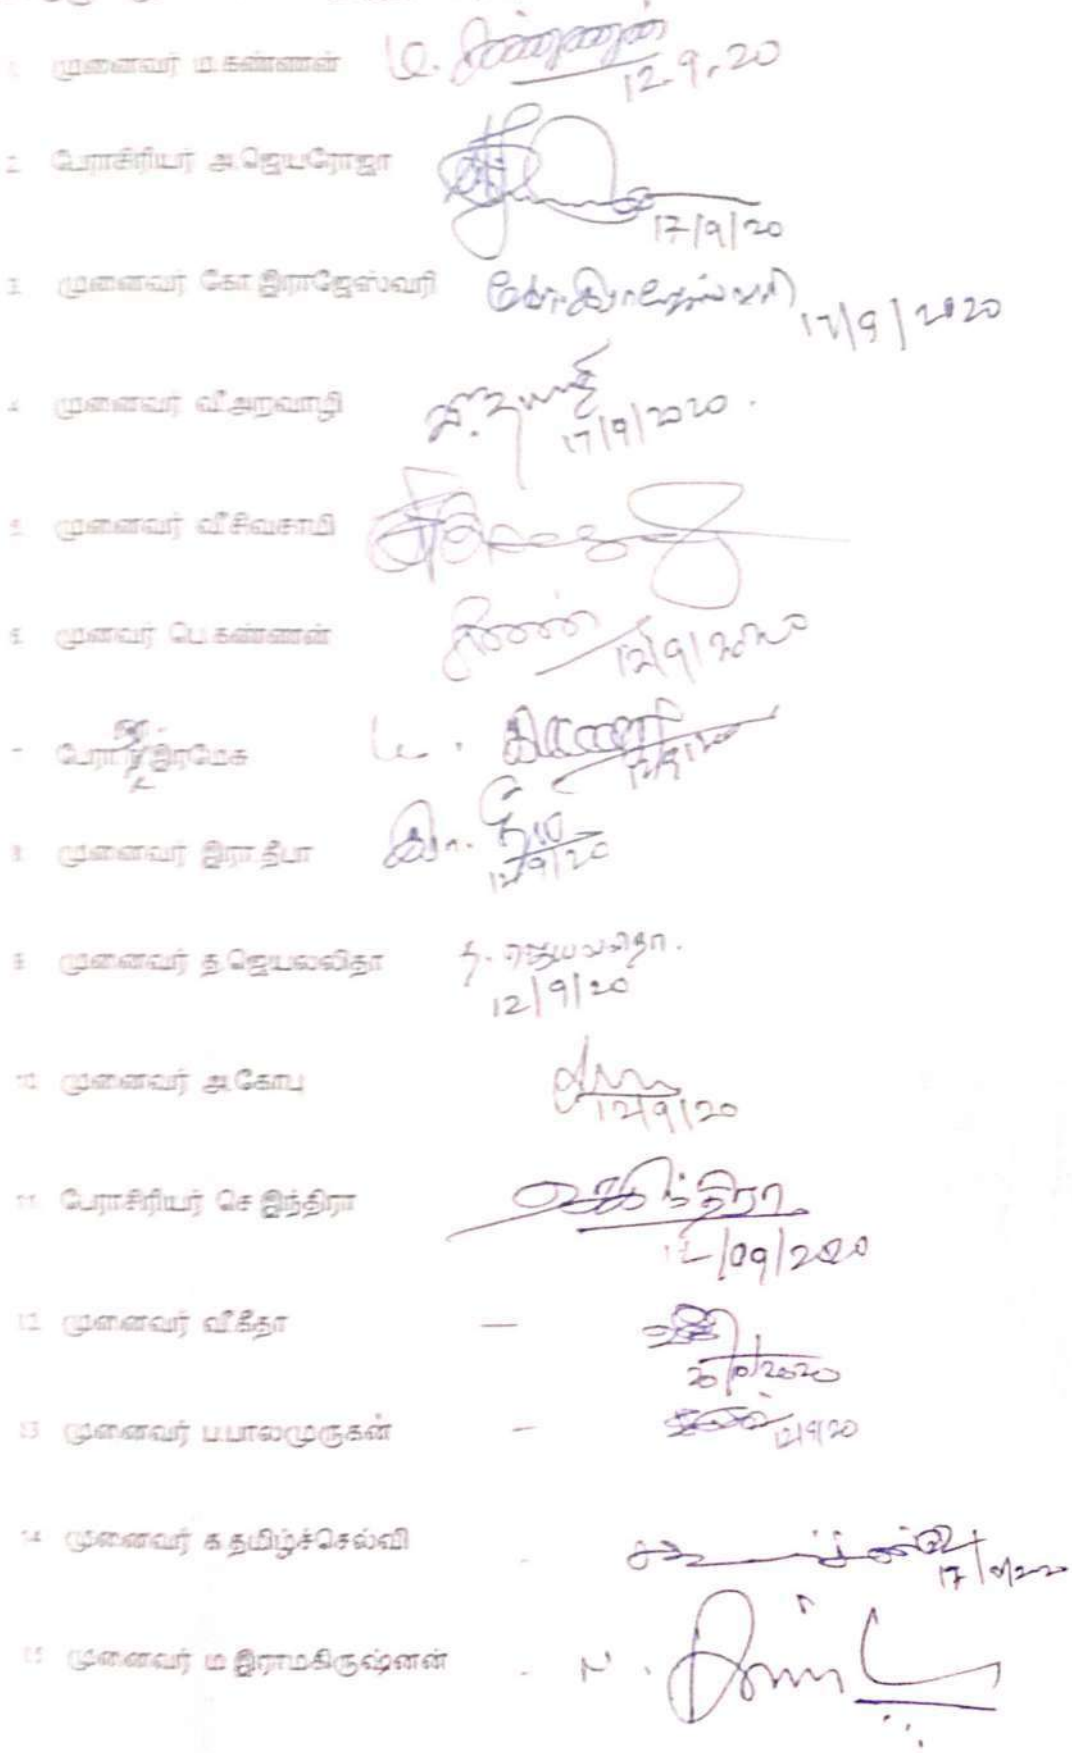 1. முனைவர் ம.கண்ணன் ம. கண்ணன் 12.9.20
2 பேராசிரியர் அ.ஜெயரோஜா 17/9/20
3. முனைவர் கோ.இராஜேஸ்வரி கோ.இராஜேஸ்வரி 17/9/2020
4 முனைவர் வீ.அறவாழி 17/9/2020.
5. முனைவர் வீ.சிவசாமி
6. முனவர் பெ.கண்ணன் 12/9/2020
7 பேரா இரமேசு 12/9/20
8. முனைவர் இரா.தீபா இரா. தீபா 12/9/20
9 முனைவர் த.ஜெயலலிதா த. ஜெயலலிதா. 12/9/20
10 முனைவர் அ.கோபு 12/9/20
11 பேராசிரியர் செ.இந்திரா செ.இந்திரா 12/09/2020
12 முனைவர் வீ.கீதா — 20/9/2020
13 முனைவர் ப.பாலமுருகன் – 12/9/20
14 முனைவர் க.தமிழ்ச்செல்வி - 17/9/2020
15 முனைவர் ம.இராமகிருஷ்னன் -